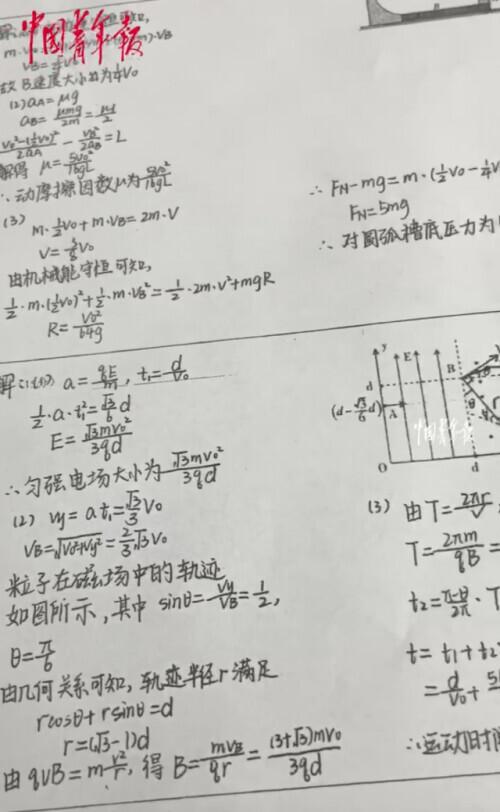 中国青年报
故B速度大小为¼V₀
(2) a_A=μg
a_B=μmg/2m=μ/2
(V₀²-(½V₀)²)/2a_A - V_B²/2a_B=L
解得 μ=5V₀²/16gL
∴动摩擦因数μ为5V₀²/16gL
(3)
m·½V₀+m·V_B=2m·V
V=3/8V₀
由机械能守恒可知,
½·m·(½V₀)²+½·m·V_B²=½·2m·V²+mgR
R=V₀²/64g
∴ F_N-mg=m·(½V₀-¼V
F_N=5mg
∴ 对圆弧槽底压力为
解:(1) a=qE/m, t₁=d/V₀
½·a·t₁²=√3/6 d
E=√3mV₀²/3qd
∴匀强电场大小为√3mV₀²/3qd
(2) Vy=at₁=√3/3V₀
V_B=√(V₀²+Vy²)=2/3√3V₀
粒子在磁场中的轨迹
如图所示,其中 sinθ=Vy/V_B=1/2,
θ=π/6
由几何关系可知,轨迹半径r满足
rcosθ+rsinθ=d
r=(√3-1)d
由qVB=mV²/r,得B=mV_B/qr=(3+√3)mV₀/3qd
y
E
B
d
θ
(d-√3/6d)
A
O
d
中国青年报
(3) 由T=2πr/V
T=2πm/qB=
t₂=(π-θ)/2π·T
t=t₁+t₂
=d/V₀+
∴运动时间